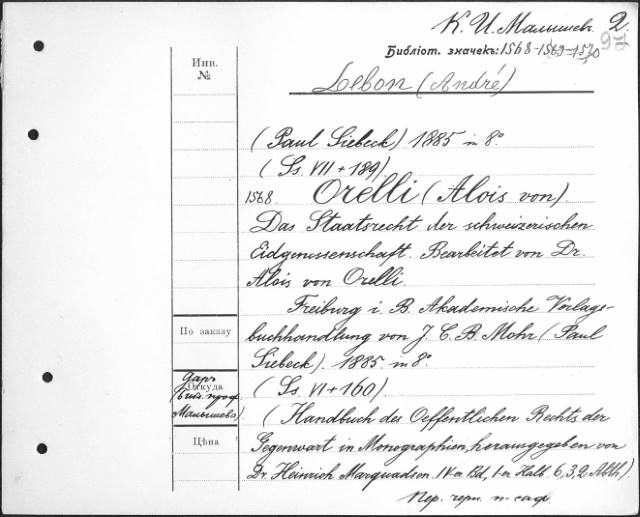 К. И. Малышевъ. 2.
Библіот. значекъ: 1568-1569-1570
Инв.
№
Lebon (André)
(Paul Siebeck) 1885 in 8º
(Ss. VII + 189).
1568. Orelli (Alois von)
Das Staatsrecht der schweizerischen
Eidgenossenschaft. Bearbeitet von Dr.
Alois von Orelli.
Freiburg i. B. Akademische Verlags-
По заказу
buchhandlung von J. C. B. Mohr (Paul
Siebeck). 1885. in 8º
Даръ
Откуда
(Биб. проф.
Малышева).
(Ss. VI + 160)
(Handbuch des Oeffentlichen Rechts der
Цѣна
Gegenwart in Monographien, herausgegeben von
Dr. Heinrich Marquadsen. IV-er Bd, 1-er Halb. 6, 3, 2 Abth.).
Пер. черн. п-саф.